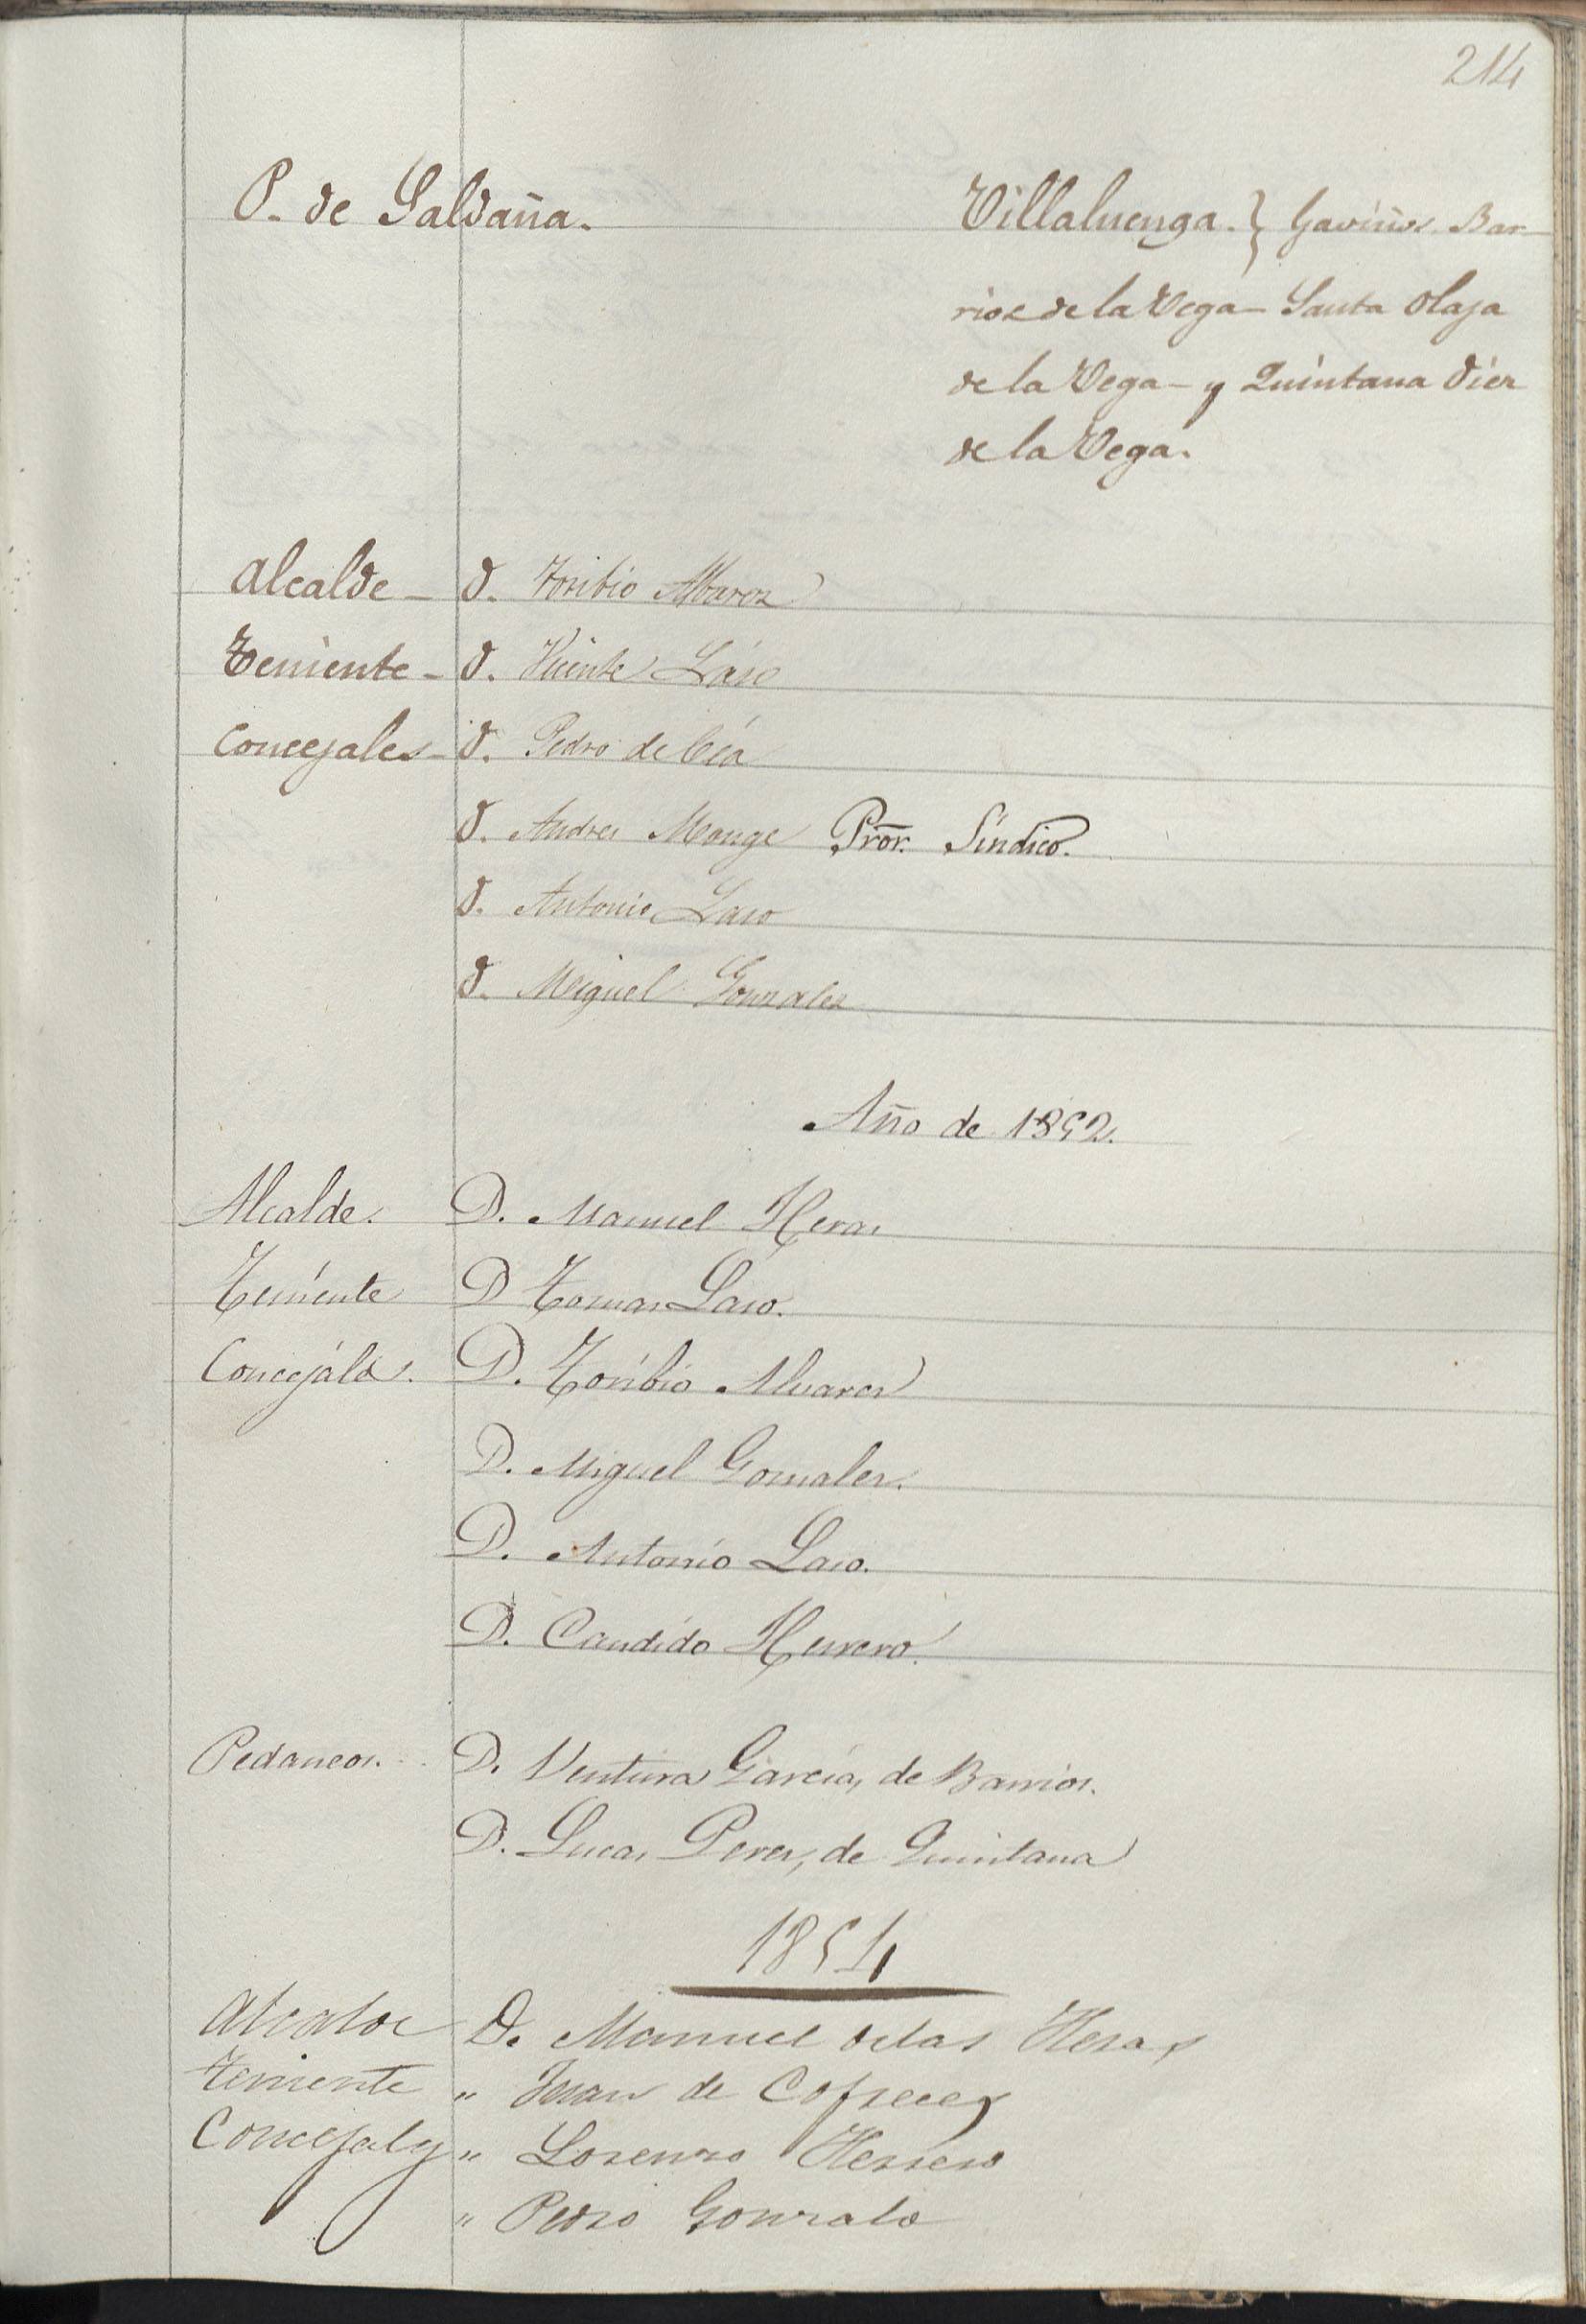 214
P. de Saldaña.
Villaluenga. } Gaviños. Bar-
rios de la Vega - Santa Olaja
de la Vega - y Quintana Diez
de la Vega.
Alcalde - D. Toribio Albarez
Teniente - D. Vicente Laso
Concejales - D. Pedro de Cea
D. Andres Monge Pror. Síndico.
D. Antonio Laso
D. Miguel Gonzalez
Año de 1852.
Alcalde. D. Manuel Heras
Teniente D Tomas Laso.
Concejáles. D. Toribio Alvarez
D. Miguel Gonzalez.
D. Antonio Laso.
D. Candido Herrero.
Pedaneos. D. Ventura García, de Barrios.
D. Lucas Perez, de Quintana
1854
Alcalde D. Manuel de las Heras
Teniente " Juan de Cofreces
Concejales " Lorenzo Herrero
" Pedro Gonzalo